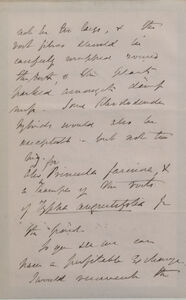 not be too large, & the
best plan should be
carefully wrapped round
the roots, & the plants
packed amongst damp
moss. Some Rhododendron
hybrids would also be
acceptable – but not too
big for
Also Primula farinosa, &
a few of the roots
of Typha angustifolia for
the pond.
So you see we can
have a profitable exchange.
I would recommend the